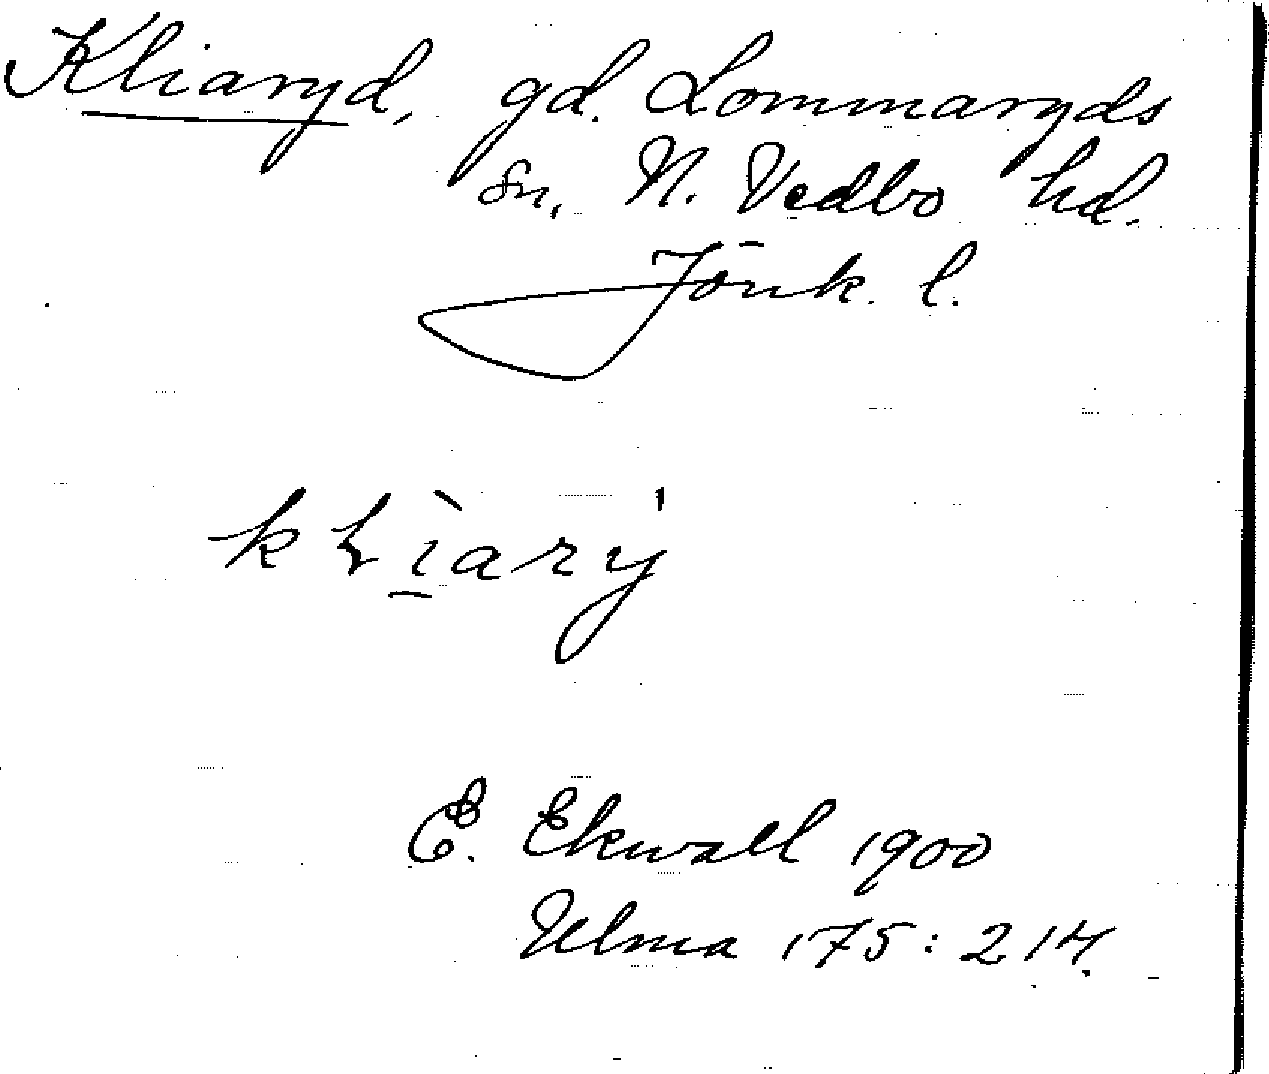 Kliaryd, gd. Lommaryds
sn, N. Vedbo hd.
Jönk. l.
kḷ̀iarý
E. Ekwall 1900
Ulma 175:214.